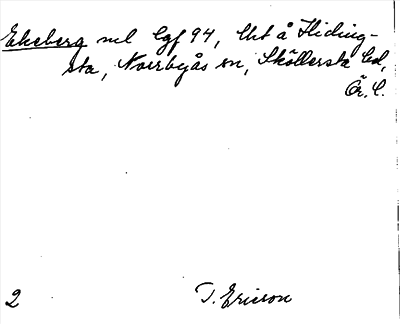 Ekeberg nel Cgf 94, lht å Hiding-
sta, Norrbyås sn, Sköllersta hd,
Ör. l.
2 T. Ericson